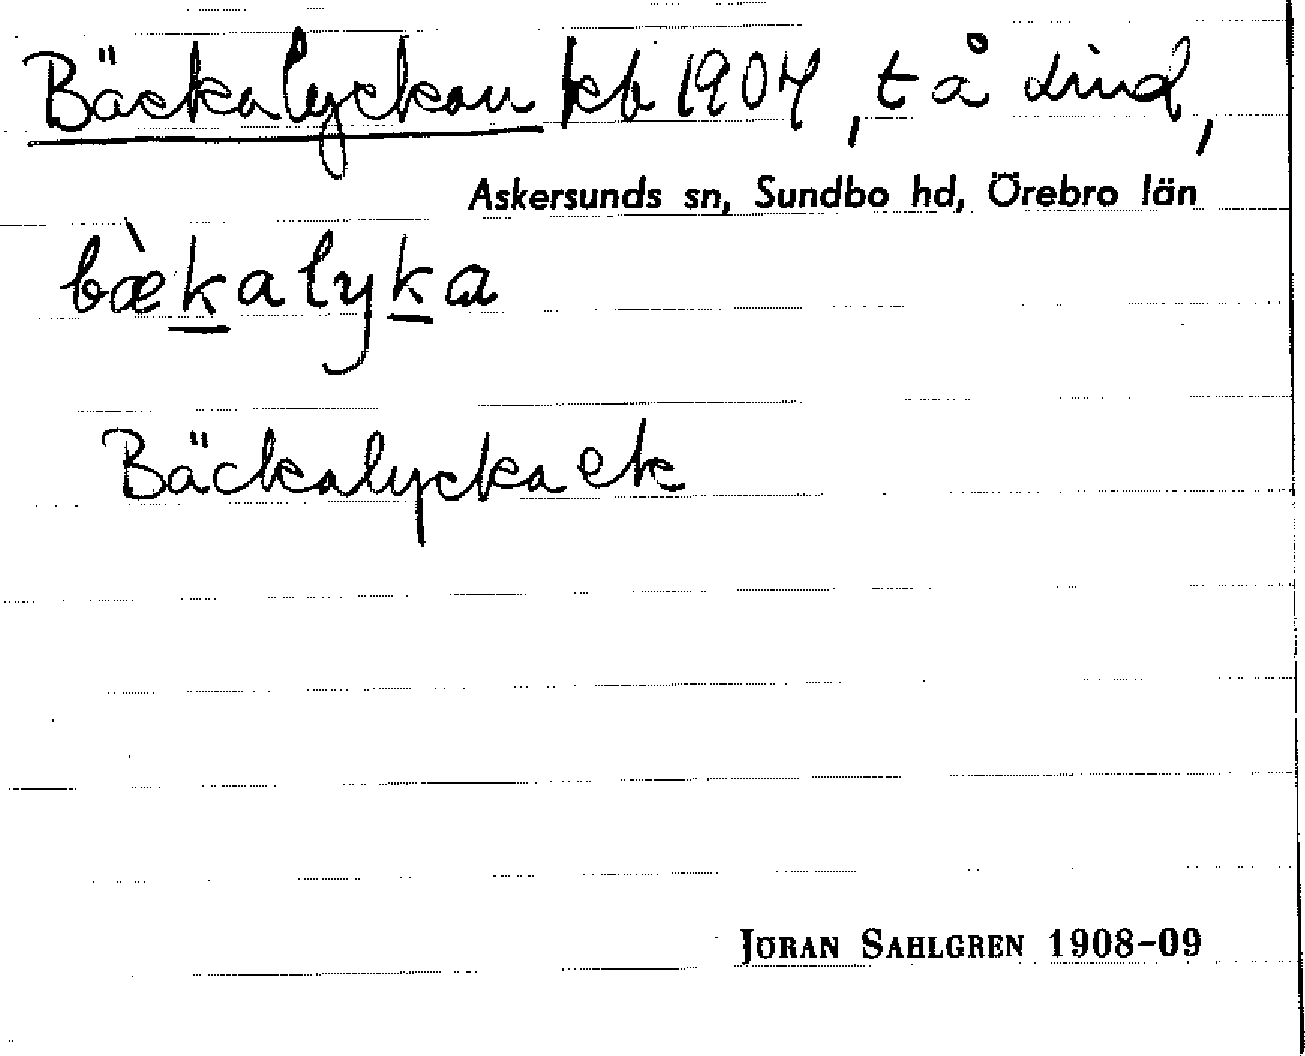 Bäckalyckan kb 1907, t å Lind,
Askersunds sn, Sundbo hd, Örebro län
bæ̀k̲alyk̲a
Bäckalycka ek
JÖRAN SAHLGREN 1908-09